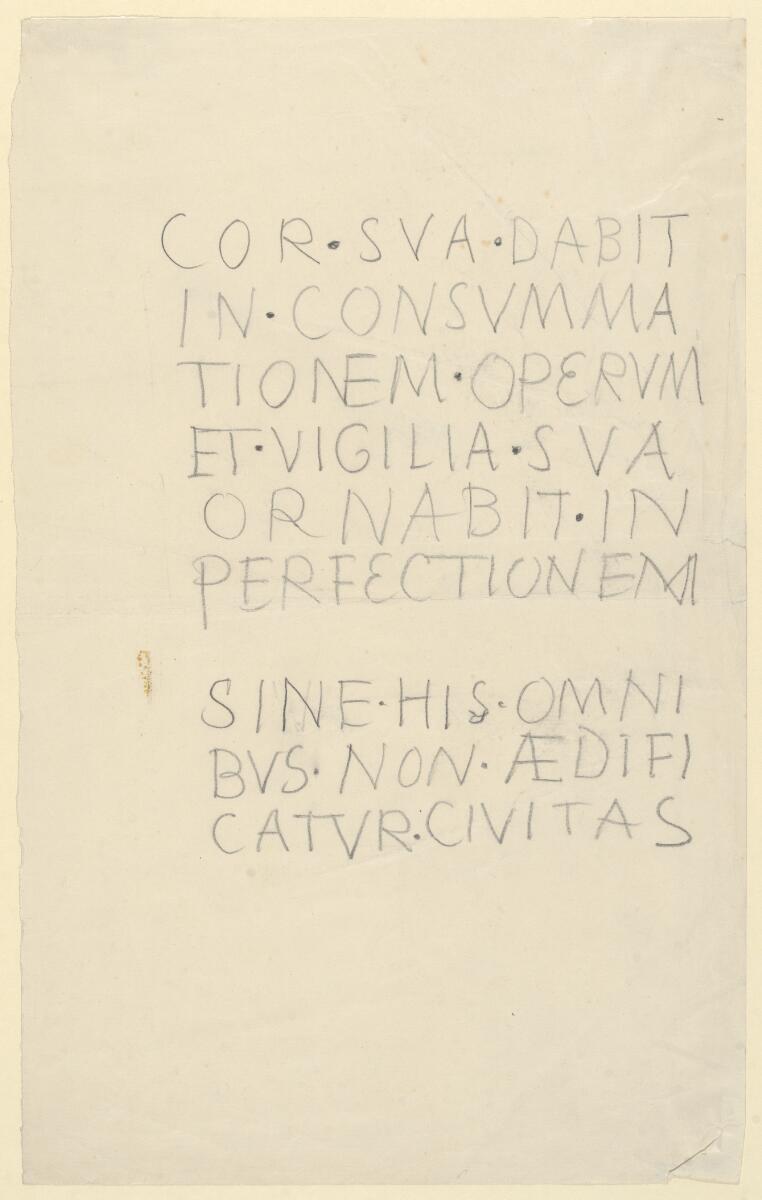 COR·SVA·DABIT
IN·CONSVMMA
TIONEM·OPERVM
ET·VIGILIA·SVA
ORNABIT·IN
PERFECTIONEM
SINE·HIS·OMNI
BVS·NON·ÆDIFI
CATVR·CIVITAS